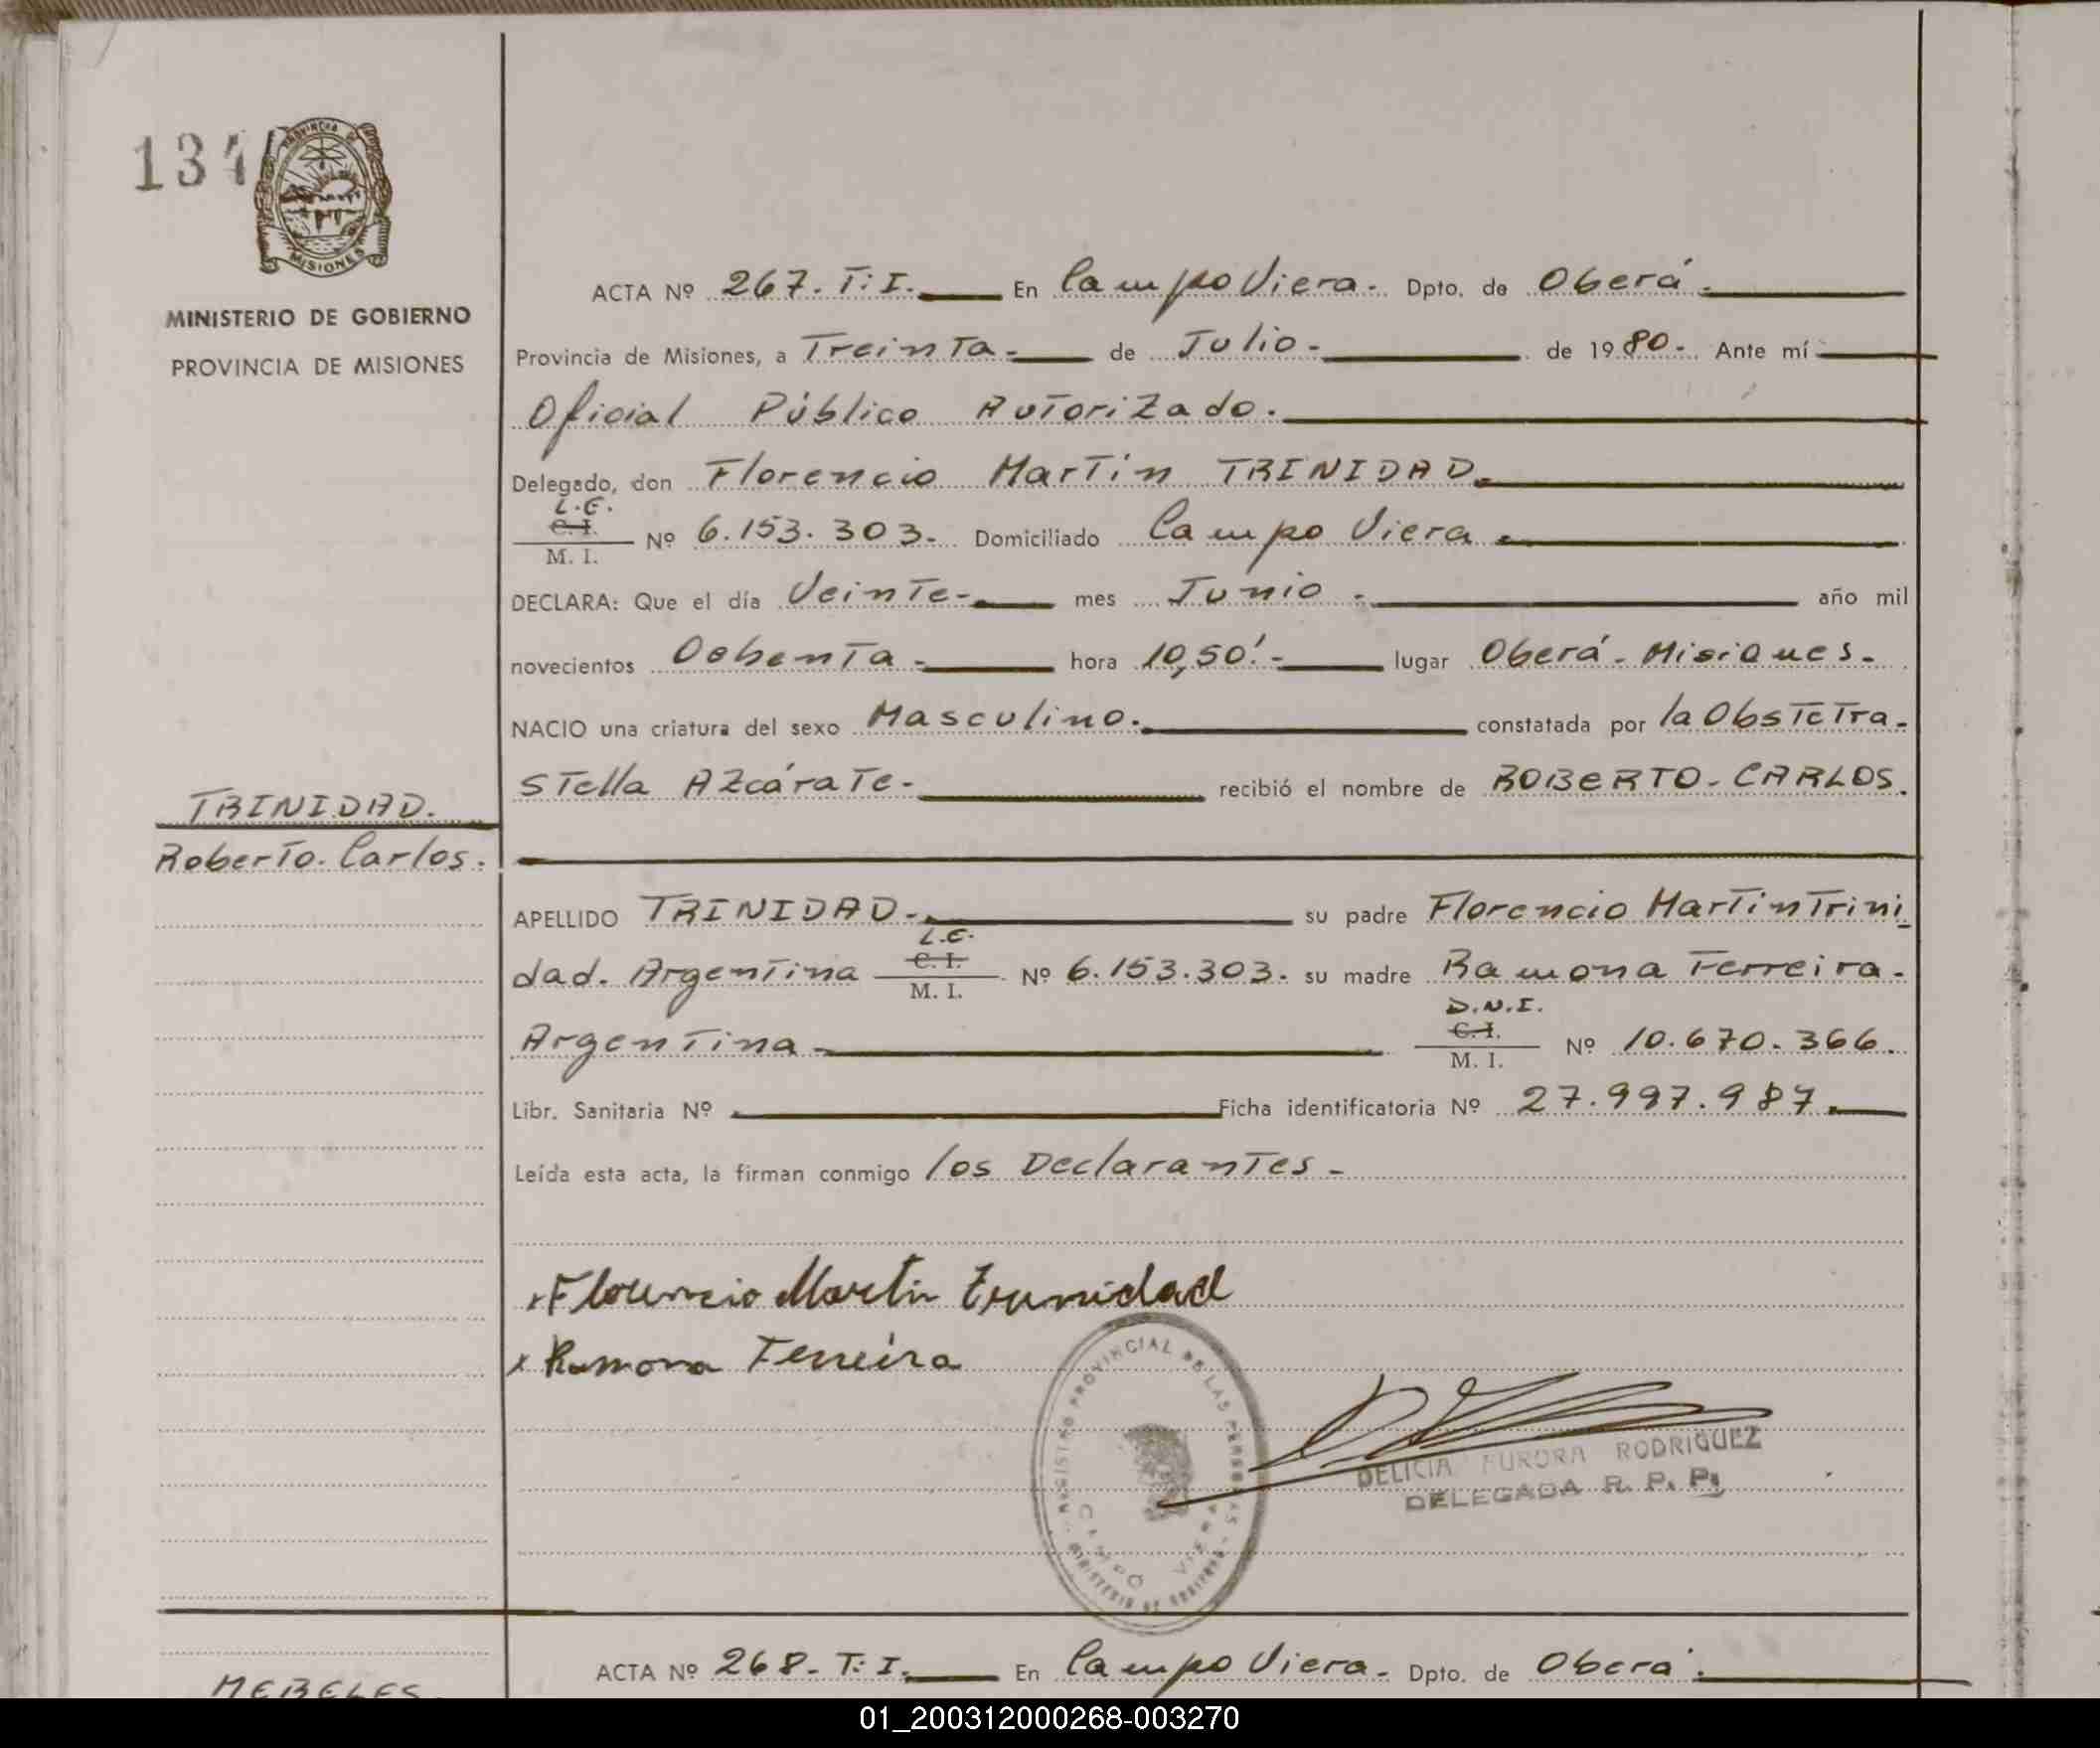 134
PROVINCIA DE
MISIONES
MINISTERIO DE GOBIERNO
PROVINCIA DE MISIONES
ACTA Nº 267. T. I. En Campo Viera. Dpto. de Oberá.
Provincia de Misiones, a Treinta de Julio. de 1980. Ante mí
Oficial Público Autorizado.
Delegado, don Florencio Martin TRINIDAD.
L.E.
C. I.
M. I.
Nº 6.153.303. Domiciliado Campo Viera.
DECLARA: Que el día Veinte mes Junio año mil
novecientos Ochenta hora 10,50' lugar Oberá. Misiones.
NACIO una criatura del sexo Masculino. constatada por la Obstetra.
Stella Azcárate. recibió el nombre de ROBERTO. CARLOS.
TRINIDAD.
Roberto. Carlos.
APELLIDO TRINIDAD. su padre Florencio Martin Trini
L.E.
dad. Argentina C. I. Nº 6.153.303. su madre Ramona Ferreira.
M. I.
D.N.I.
Argentina C. I. Nº 10.670.366.
M. I.
Libr. Sanitaria Nº Ficha identificatoria Nº 27.997.987.
Leída esta acta, la firman conmigo los Declarantes.
x Florencio Martin Trinidad
x Ramona Ferreira
REGISTRO PROVINCIAL DE LAS PERSONAS
CAMPO VIERA
MINISTERIO DE GOBIERNO
DELICIA AURORA RODRIGUEZ
DELEGADA R. P. P.
ACTA Nº 268. T. I. En Campo Viera. Dpto. de Oberá.
MERELES
01_200312000268-003270